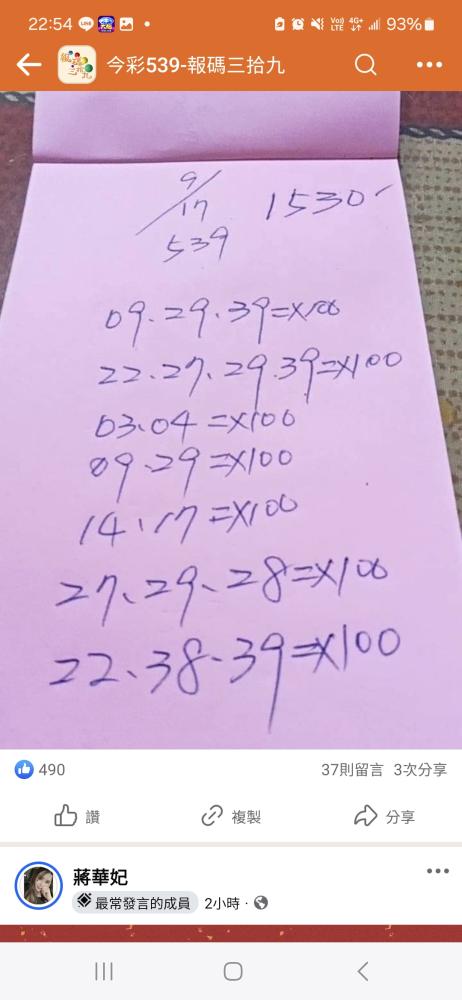 22:54 LINE Vo)) LTE 4G+ 93%
今彩539-報碼三拾九
9/17 1530
539
09.29.39=X100
22.27.29.39=X100
03.04=X100
09.29=X100
14.17=X100
27.29.28=X100
22.38.39=X100
490 37則留言 3次分享
讚 複製 分享
蔣華妃
最常發言的成員 2小時